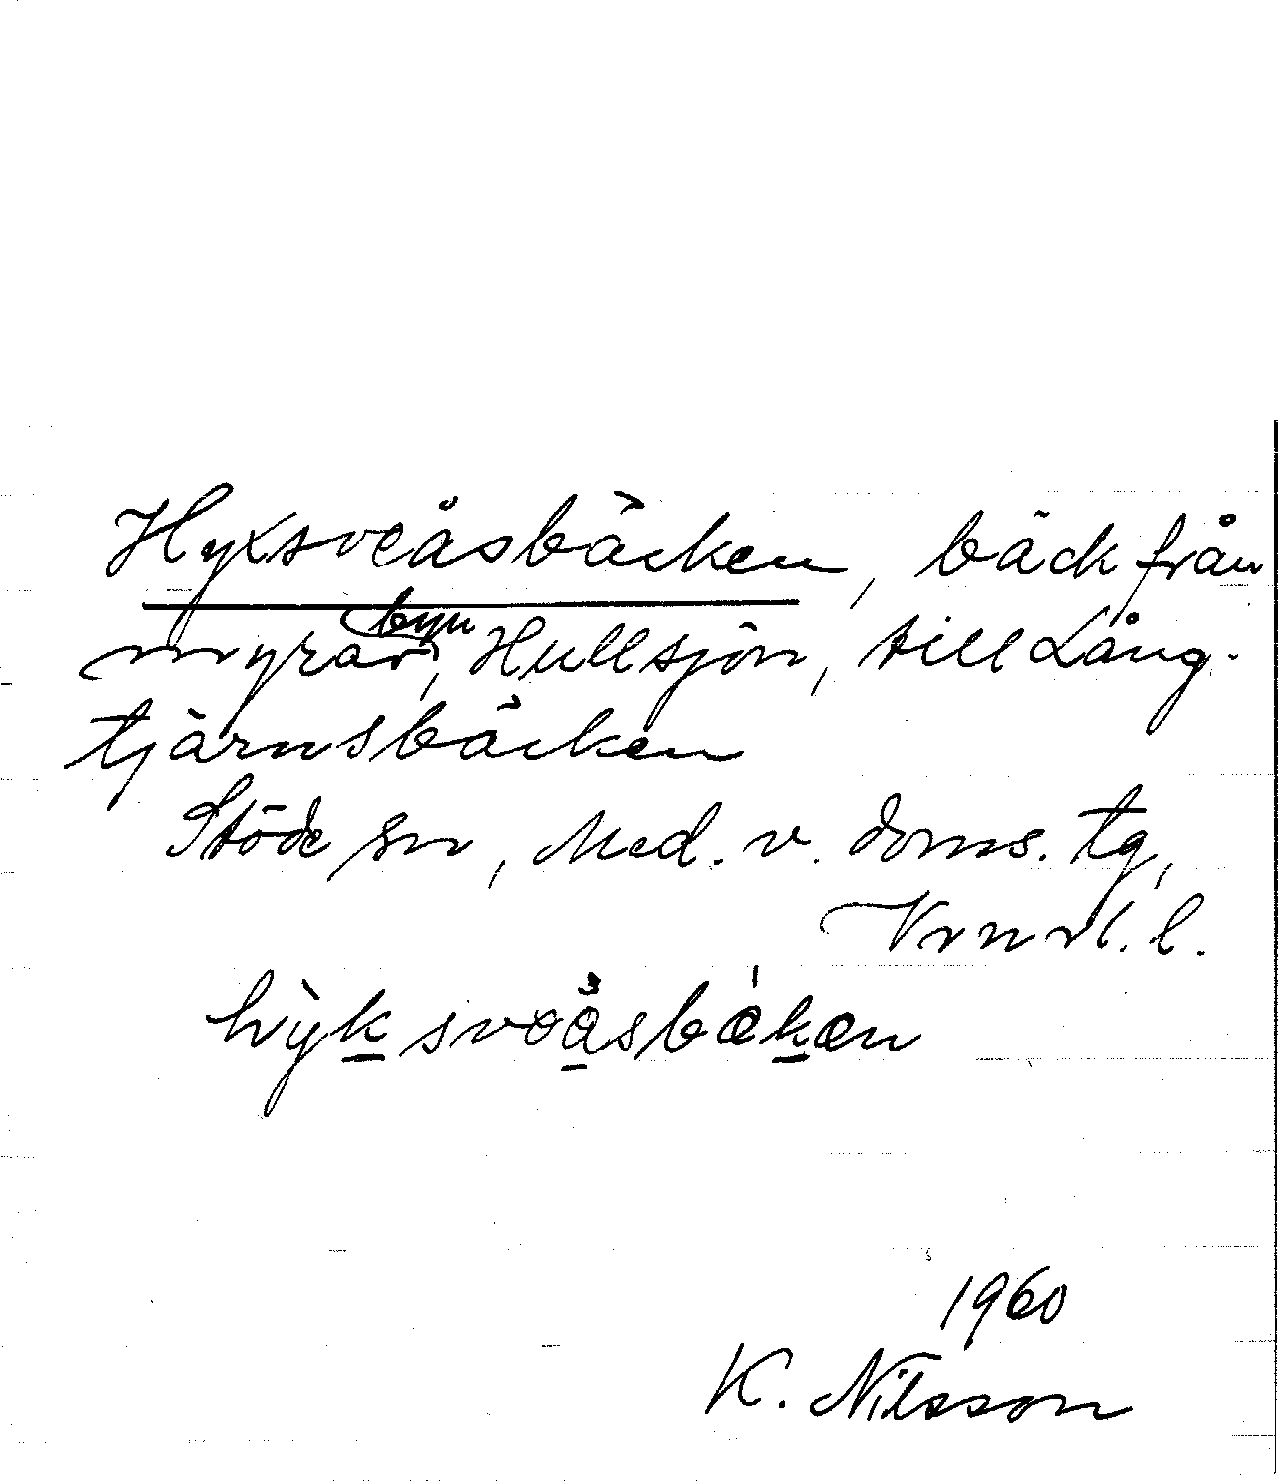 Hyxsveåsbäcken, bäck från
myrar, byn Hullsjön, till Lång-
tjärnsbäcken
Stöde sn, Med. v. doms. tg,
Vrnrl. l.
1960
K. Nilsson